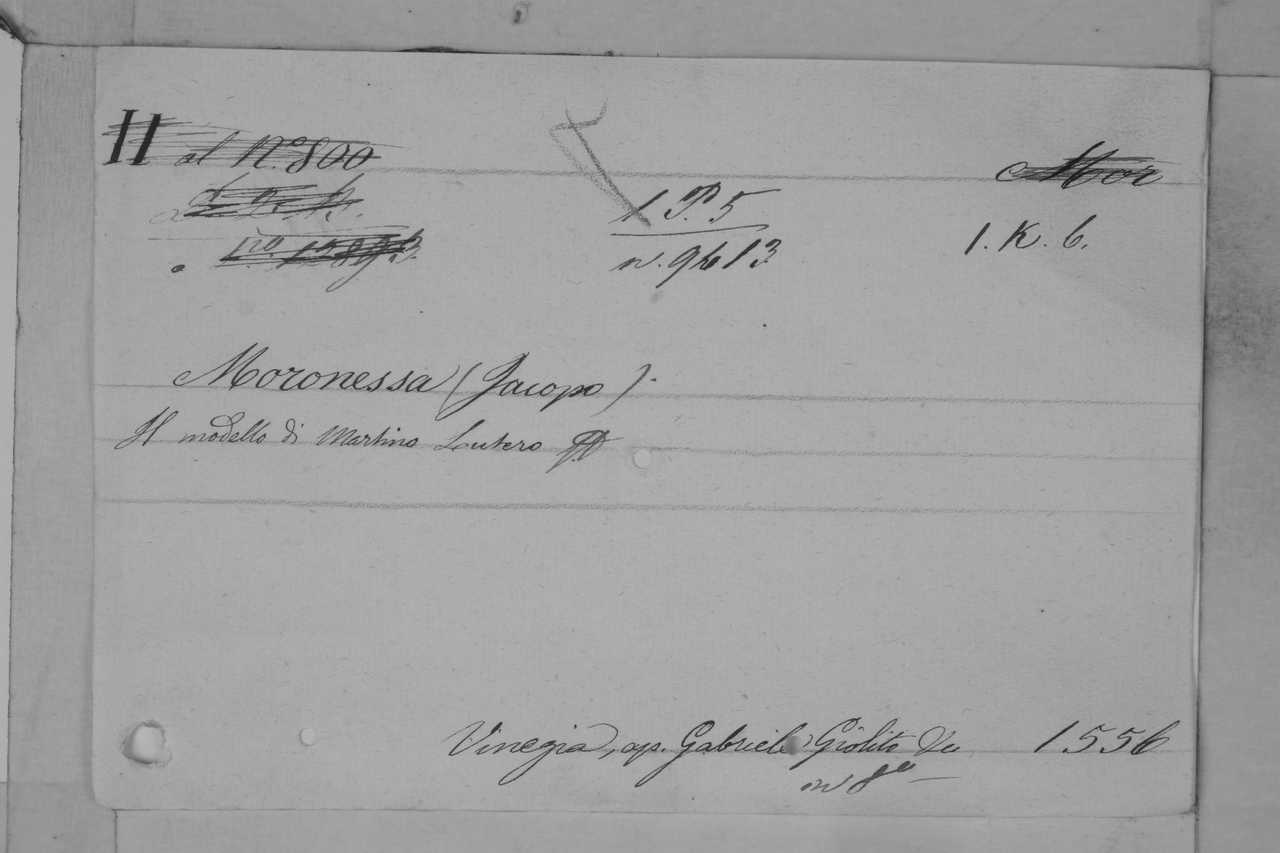 H al N.º 800
1 P. 5
n. 9613
Mor
1. K. 6.
Moronessa (Jacopo).
Il modello di Martino Lutero
Vinegia, ap. Gabriele Giolito &c 1556
in 8º